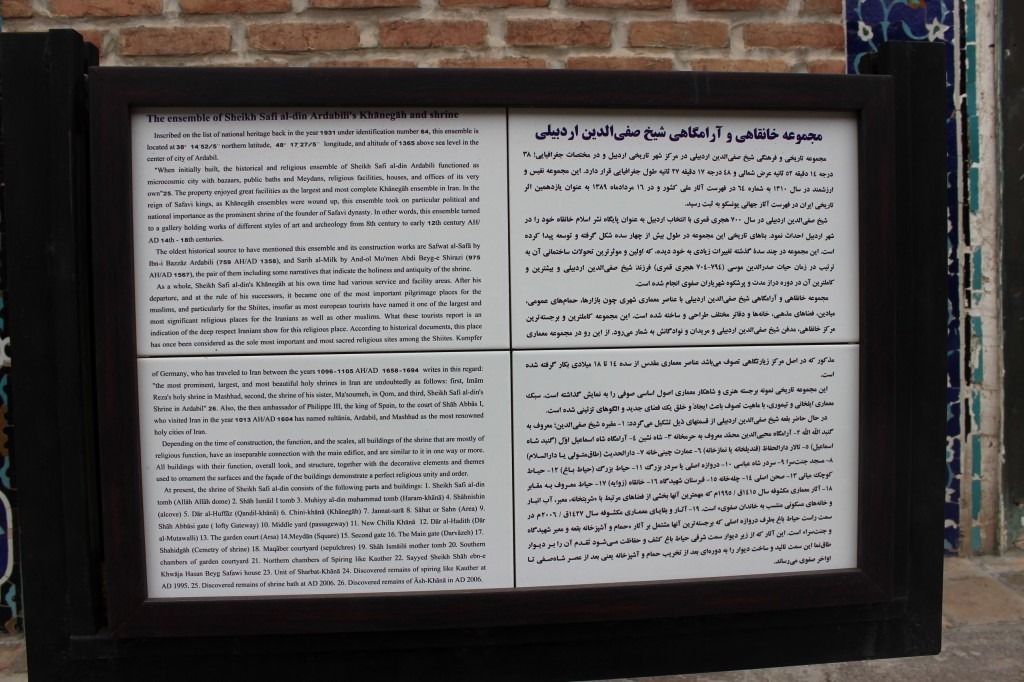 The ensemble of Sheikh Safi al-din Ardabili's Khānegāh and shrine
Inscribed on the list of national heritage back in the year 1931 under identification number 64, this ensemble is
located at 38° 14′52/5″ northern latitude, 48° 17′27/5″ longitude, and altitude of 1365 above sea level in the
center of city of Ardabil.
"When initially built, the historical and religious ensemble of Sheikh Safi al-din Ardabili functioned as
microcosmic city with bazaars, public baths and Meydans, religious facilities, houses, and offices of its very
own"25. The property enjoyed great facilities as the largest and most complete Khānegāh ensemble in Iran. In the
reign of Safavi kings, as Khānegāh ensembles were wound up, this ensemble took on particular political and
national importance as the prominent shrine of the founder of Safavi dynasty. In other words, this ensemble turned
to a gallery holding works of different styles of art and archeology from 8th century to early 12th century AH/
AD 14th - 18th centuries.
The oldest historical source to have mentioned this ensemble and its construction works are Safwat al-Safā by
Ibn-i Bazzāz Ardabili (759 AH/AD 1358), and Sarih al-Milk by And-ol Mo'men Abdi Beyg-e Shirazi (975
AH/AD 1567), the pair of them including some narratives that indicate the holiness and antiquity of the shrine.
As a whole, Sheikh Safi al-din's Khānegāh at his own time had various service and facility areas. After his
departure, and at the rule of his successors, it became one of the most important pilgrimage places for the
muslims, and particularly for the Shiites, insofar as most european tourists have named it one of the largest and
most significant religious places for the Iranians as well as other muslims. What these tourists report is an
indication of the deep respect Iranians show for this religious place. According to historical documents, this place
has once been considered as the sole most important and most sacred religious sites among the Shiites. Kumpfer
of Germany, who has traveled to Iran between the years 1096-1105 AH/AD 1658-1694 writes in this regard:
"the most prominent, largest, and most beautiful holy shrines in Iran are undoubtedly as follows: first, Imām
Reza's holy shrine in Mashhad, second, the shrine of his sister, Ma'soumeh, in Qom, and third, Sheikh Safi al-din's
Shrine in Ardabil" 26. Also, the then ambassador of Philippe III, the king of Spain, to the court of Shāh Abbās I,
who visited Iran in the year 1013 AH/AD 1604 has named sultānia, Ardabil, and Mashhad as the most renowned
holy cities of Iran.
Depending on the time of construction, the function, and the scales, all buildings of the shrine that are mostly of
religious function, have an inseparable connection with the main edifice, and are similar to it in one way or more.
All buildings with their function, overall look, and structure, together with the decorative elements and themes
used to ornament the surfaces and the façade of the buildings demonstrate a perfect religious unity and order.
At present, the shrine of Sheikh Safi al-din consists of the following parts and buildings: 1. Sheikh Safi al-din
tomb (Allāh Allāh dome) 2. Shāh Ismāil I tomb 3. Mohiyy al-din muhammad tomb (Haram-khānā) 4. Shāhnishin
(alcove) 5. Dār al-Huffāz (Qandil-khānā) 6. Chini-khānā (Khānegāh) 7. Jannat-sarā 8. Sāhat or Sahn (Area) 9.
Shāh Abbāsi gate ( lofty Gateway) 10. Middle yard (passageway) 11. New Chilla Khānā 12. Dār al-Hadith (Dār
al-Mutawalli) 13. The garden court (Arsa) 14.Meydān (Square) 15. Second gate 16. The Main gate (Darvāzeh) 17.
Shahidgāh (Cemetry of shrine) 18. Maqāber courtyard (sepulchres) 19. Shāh Ismāil mother tomb 20. Southern
chambers of garden courtyard 21. Northern chambers of Spiring like Kauther 22. Sayyed Sheikh Shāh ebn-e
Khwāja Hasan Beyg Safawi house 23. Unit of Sharbat-Khānā 24. Discovered remains of spiring like Kauther at
AD 1995. 25. Discovered remains of shrine bath at AD 2006. 26. Discovered remains of Āsh-Khānā in AD 2006.
مجموعه خانقاهی و آرامگاهی شیخ صفی‌الدین اردبیلی
مجموعه تاریخی و فرهنگی شیخ صفی‌الدین اردبیلی در مرکز شهر تاریخی اردبیل و در مختصات جغرافیایی؛ ۳۸
درجه ۱۴ دقیقه ۵۲ ثانیه عرض شمالی و ۴۸ درجه ۱۷ دقیقه ۲۷ ثانیه طول جغرافیایی قرار دارد. این مجموعه نفیس و
ارزشمند در سال ۱۳۱۰ به شماره ۶۴ در فهرست آثار ملی کشور و در ۱۶ مردادماه ۱۳۸۹ به عنوان یازدهمین اثر
تاریخی ایران در فهرست آثار جهانی یونسکو به ثبت رسید.
شیخ صفی‌الدین اردبیلی در سال ۷۰۰ هجری قمری با انتخاب اردبیل به عنوان پایگاه نشر اسلام خانقاه خود را در
شهر اردبیل احداث نمود. بناهای تاریخی این مجموعه در طول بیش از چهار سده شکل گرفته و توسعه پیدا کرده
است. این مجموعه در چند سدهٔ گذشته تغییرات زیادی به خود دیده، که اولین و موثرترین تحولات ساختمانی آن به
ترتیب در زمان حیات صدرالدین موسی (۷۹۴-۷۰۴ هجری قمری) فرزند شیخ صفی‌الدین اردبیلی و بیشترین و
کاملترین آن در دوره دراز مدت و پرشکوه شهریاران صفوی انجام شده است.
مجموعه خانقاهی و آرامگاهی شیخ صفی‌الدین اردبیلی با عناصر معماری شهری چون بازارها، حمام‌های عمومی،
میادین، فضاهای مذهبی، خانه‌ها و دفاتر مختلف طراحی و ساخته شده است. این مجموعه کاملترین و برجسته‌ترین
مرکز خانقاهی، مدفن شیخ صفی‌الدین اردبیلی و مریدان و نوادگانش به شمار می‌رود. از این رو در مجموعه معماری
مذکور که در اصل مرکز زیارتگاهی تصوف می‌باشد عناصر معماری مقدس از سده ۱۴ تا ۱۸ میلادی بکار گرفته شده
است.
این مجموعه تاریخی نمونه برجسته هنری و شاهکار معماری اصول اساسی صوفی را به نمایش گذاشته است. سبک
معماری ایلخانی و تیموری، با ماهیت تصوف باعث ایجاد و خلق یک فضای جدید و الگوهای تزئینی شده است.
در حال حاضر بقعه شیخ صفی‌الدین اردبیلی از قسمتهای ذیل تشکیل می‌گردد: ۱- مقبره شیخ صفی‌الدین؛ معروف به
گنبد الله الله ۲- آرامگاه محیی‌الدین محمد معروف به حرمخانه ۳- شاه نشین ۴- آرامگاه شاه اسماعیل اوّل (گنبد شاه
اسماعیل) ۵- تالار دارالحفاظ (قندیلخانه یا نمازخانه) ۶- عمارت چینی‌خانه ۷- دارالحدیث (طاق‌متولی یا دارالسلام)
۸- مسجد جنت‌سرا ۹- سردر شاه عباسی ۱۰- دروازه اصلی یا سردر بزرگ ۱۱- حیاط بزرگ (حیاط باغ) ۱۲- حیاط
کوچک میانی ۱۳- صحن اصلی ۱۴- چله‌خانه ۱۵- قبرستان شهیدگاه ۱۶- خانقاه (زوایه) ۱۷- حیاط معروف به مقابر
۱۸- آثار معماری مکشوفه سال ۱۴۱۵ق / ۱۹۹۵م که مهمترین آنها بخشی از فضاهای مرتبط با شربتخانه، معبر، آب انبار
و خانه‌های مسکونی منتسب به خاندان صفوی» است. ۱۹- آثار و بقایای معماری مکشوفه سال ۱۴۲۷ق / ۲۰۰۶م در
سمت راست حیاط باغ بطرف دروازه اصلی که برجسته‌ترین آنها مشتمل بر آثار «حمام و آشپزخانه بقعه و معبر شهیدگاه
و جنت‌سرا» است. این آثار که از زیر دیوار سمت شرقی حیاط باغ کشف و حفاظت می‌شود تقدم آن را بر دیوار
طاق‌نما این سمت تائید و ساخت دیوار را به دوره‌ای بعد از تخریب حمام و آشپزخانه یعنی بعد از عصر شاه‌صفی تا
اواخر صفوی می‌رساند.